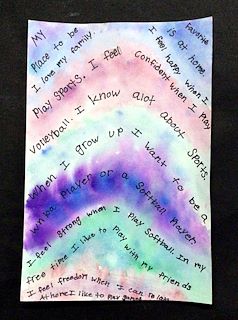 MY Favorite
Place to be is at home.
I love my family. I feel happy when I
Play Sports. I feel Confident when I Play
Volleyball. I know alot about Sports.
When I grow up I want to be a
wnba Player or a Softball Player.
I feel strong when I Play Softball. In my
free time I like to Play with my friends
I feel freedom when I can
At home I like to Play